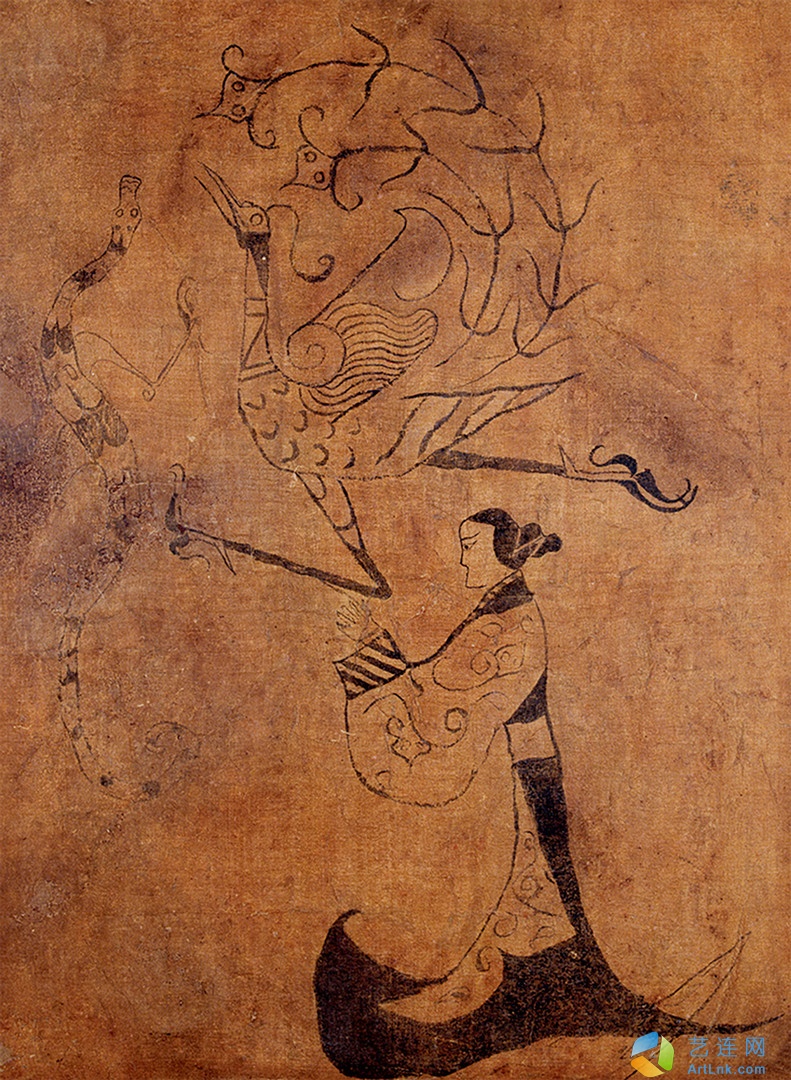 艺连网
ArtLnk.com